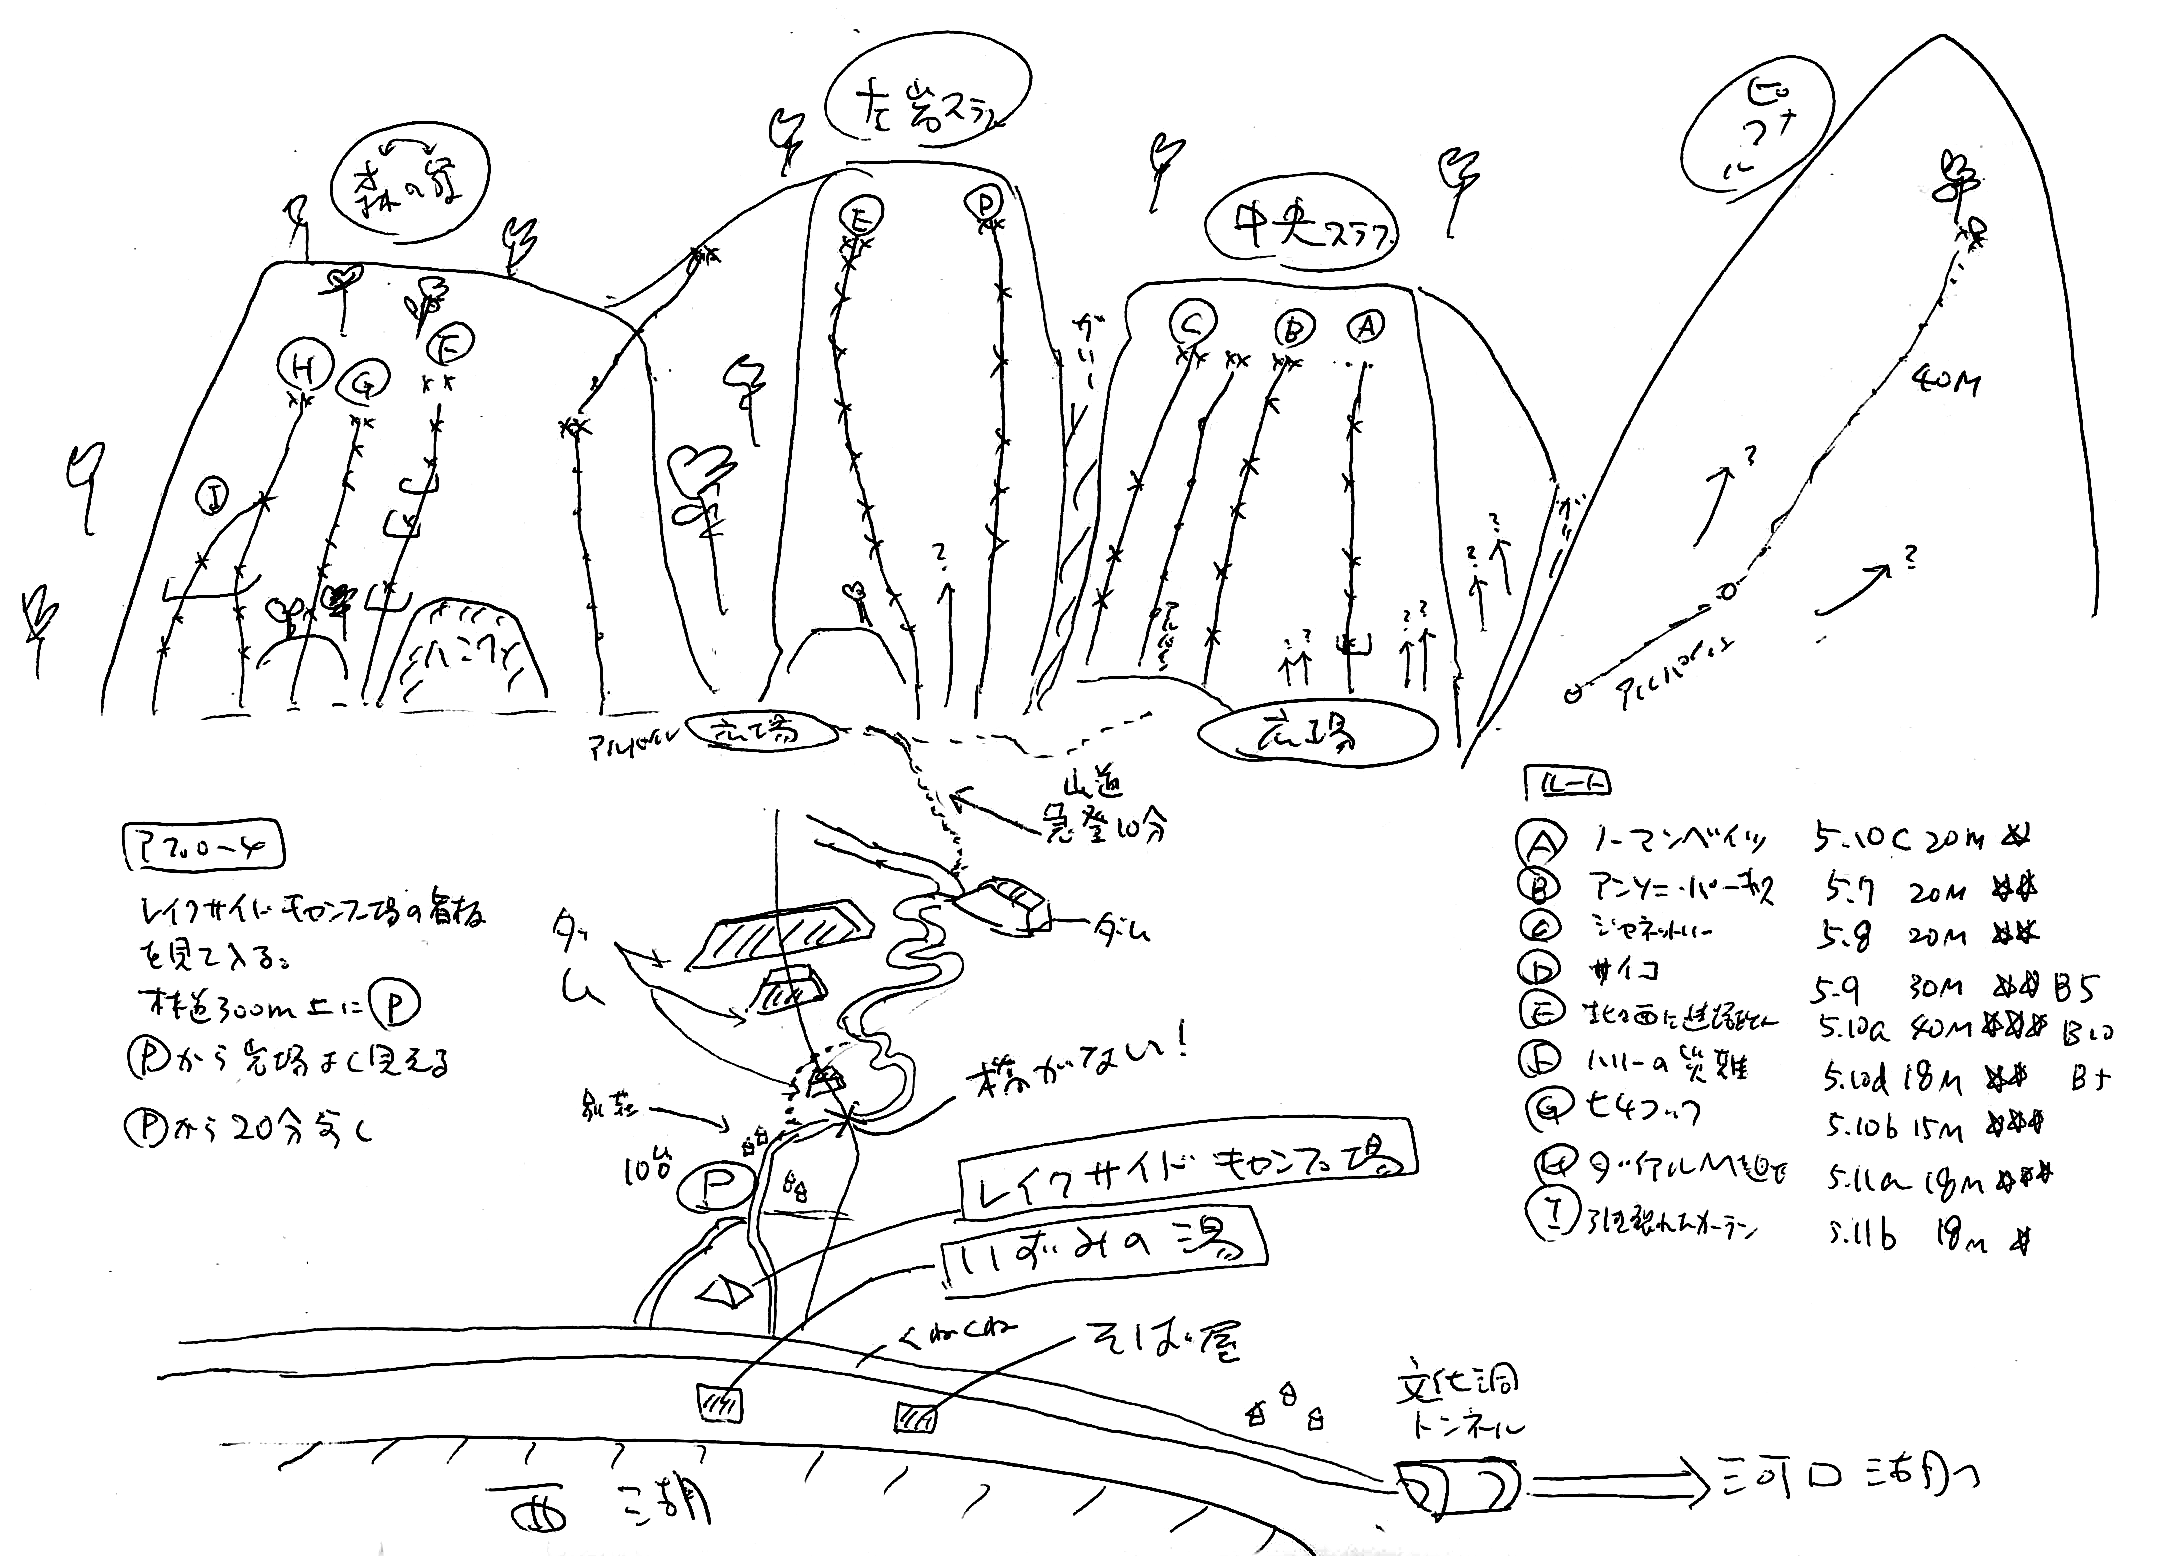 左岩スラブ
ピナクル
森の岩
中央スラブ
E
D
C
B
A
H
G
F
I
40M
?
?
?
?
?
?
?
?
?
広場
広場
山道
急登10分
アプローチ
レイクサイドキャンプ場の看板
を見て入る。
林道300m上にP
Pから岩場よく見える
Pから20分歩く
ダム
ダム
橋がない!
別荘
10台
P
レイクサイドキャンプ場
いずみの湯
くねくね
そば屋
文化洞
トンネル
西湖
河口湖へ
ルート
A ノーマンベイツ 5.10c 20m ☆
B アンソニー・パーキンス 5.7 20m ☆☆
C ジャネットリー 5.8 20m ☆☆
D サイコ 5.9 30m ☆☆ B5
E 北北西に進路をとれ 5.10a 40m ☆☆☆ B10
F ハリーの災難 5.10d 18m ☆☆ B5
G ヒチコック 5.10b 15m ☆☆☆
H ダイアルMを廻せ 5.11a 18m ☆☆☆
I 引き裂かれたカーテン 5.11b 18m ☆